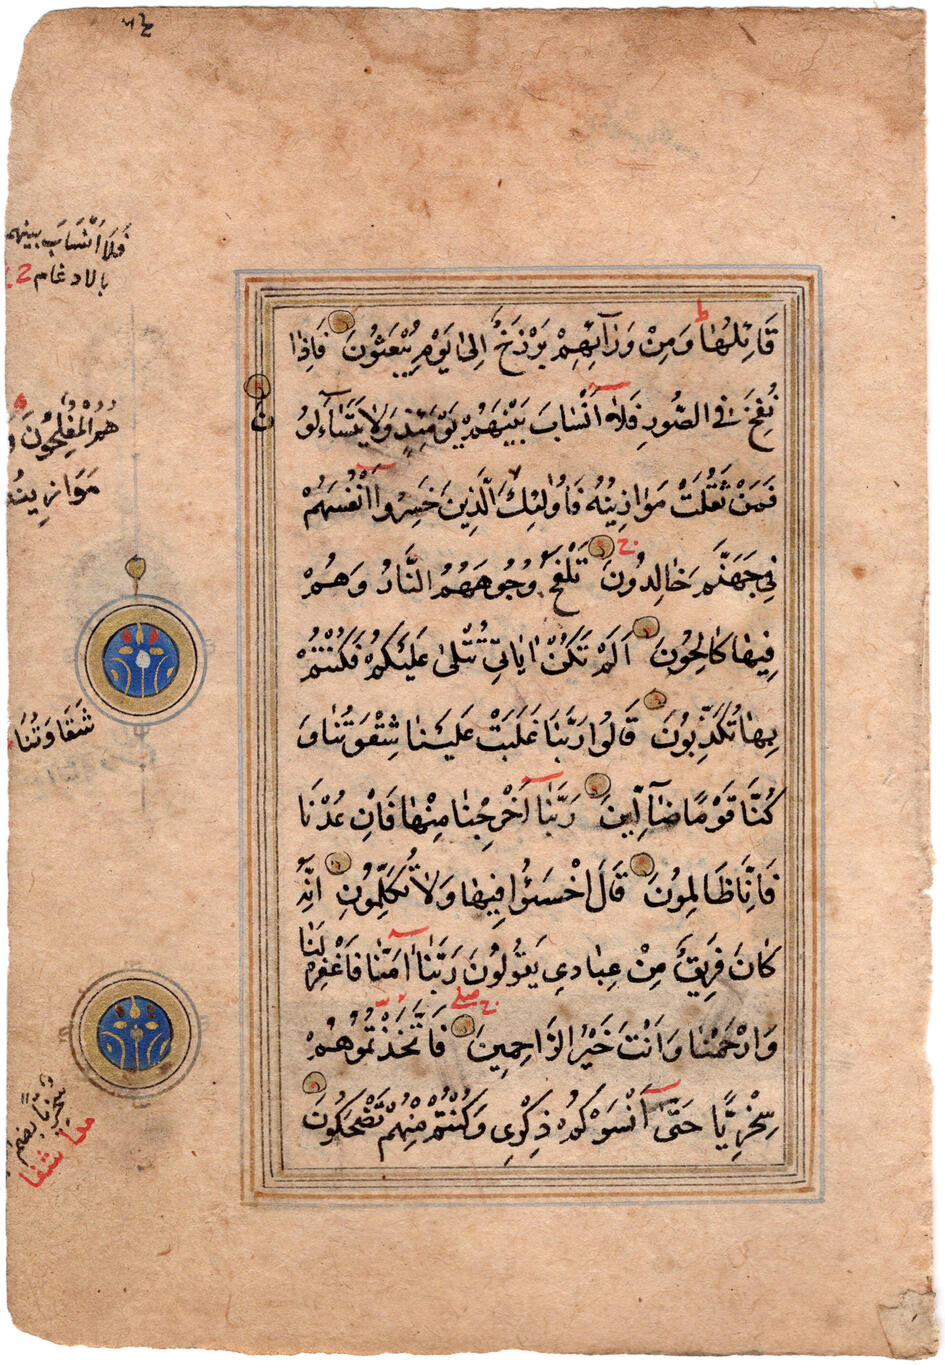 قَائِلُهَا وَمِنْ وَرَآئِهِمْ بَرْزَخٌ اِلىٰ يَوْمِ يُبْعَثُونَ فَاِذَا
نُفِخَ فِي الصُّورِ فَلَآ اَنْسَابَ بَيْنَهُمْ يَوْمَئِذٍ وَلَا يَتَسَآءَلُونَ
فَمَنْ ثَقُلَتْ مَوَازِينُهُ فَاُولٰئِكَ الَّذِينَ خَسِرُوآ اَنْفُسَهُمْ
فِي جَهَنَّمَ خَالِدُونَ تَلْفَحُ وُجُوهَهُمُ النَّارُ وَهُمْ
فِيهَا كَالِحُونَ اَلَمْ تَكُنْ اٰيَاتِي تُتْلىٰ عَلَيْكُمْ فَكُنْتُمْ
بِهَا تُكَذِّبُونَ قَالُوا رَبَّنَا غَلَبَتْ عَلَيْنَا شِقْوَتُنَا وَ
كُنَّا قَوْمًا ضَآلِّينَ رَبَّنَآ اَخْرِجْنَا مِنْهَا فَاِنْ عُدْنَا
فَاِنَّا ظَالِمُونَ قَالَ اخْسَئُوا فِيهَا وَلَا تُكَلِّمُونِ اِنَّهُ
كَانَ فَرِيقٌ مِنْ عِبَادِي يَقُولُونَ رَبَّنَآ اٰمَنَّا فَاغْفِرْ لَنَا
وَارْحَمْنَا وَاَنْتَ خَيْرُ الرَّاحِمِينَ فَاتَّخَذْتُمُوهُمْ
سِخْرِيًّا حَتّىٰ اَنْسَوْكُمْ ذِكْرِي وَكُنْتُمْ مِنْهُمْ تَضْحَكُونَ
فَلَا اَنْسَاب بينهم
بالادغام
هُمُ الْمُفْلِحُونَ وَ
مَوَازِينُه
شَقَاوَتُنَا
سُخْرِيًّا بضم
معا شفا